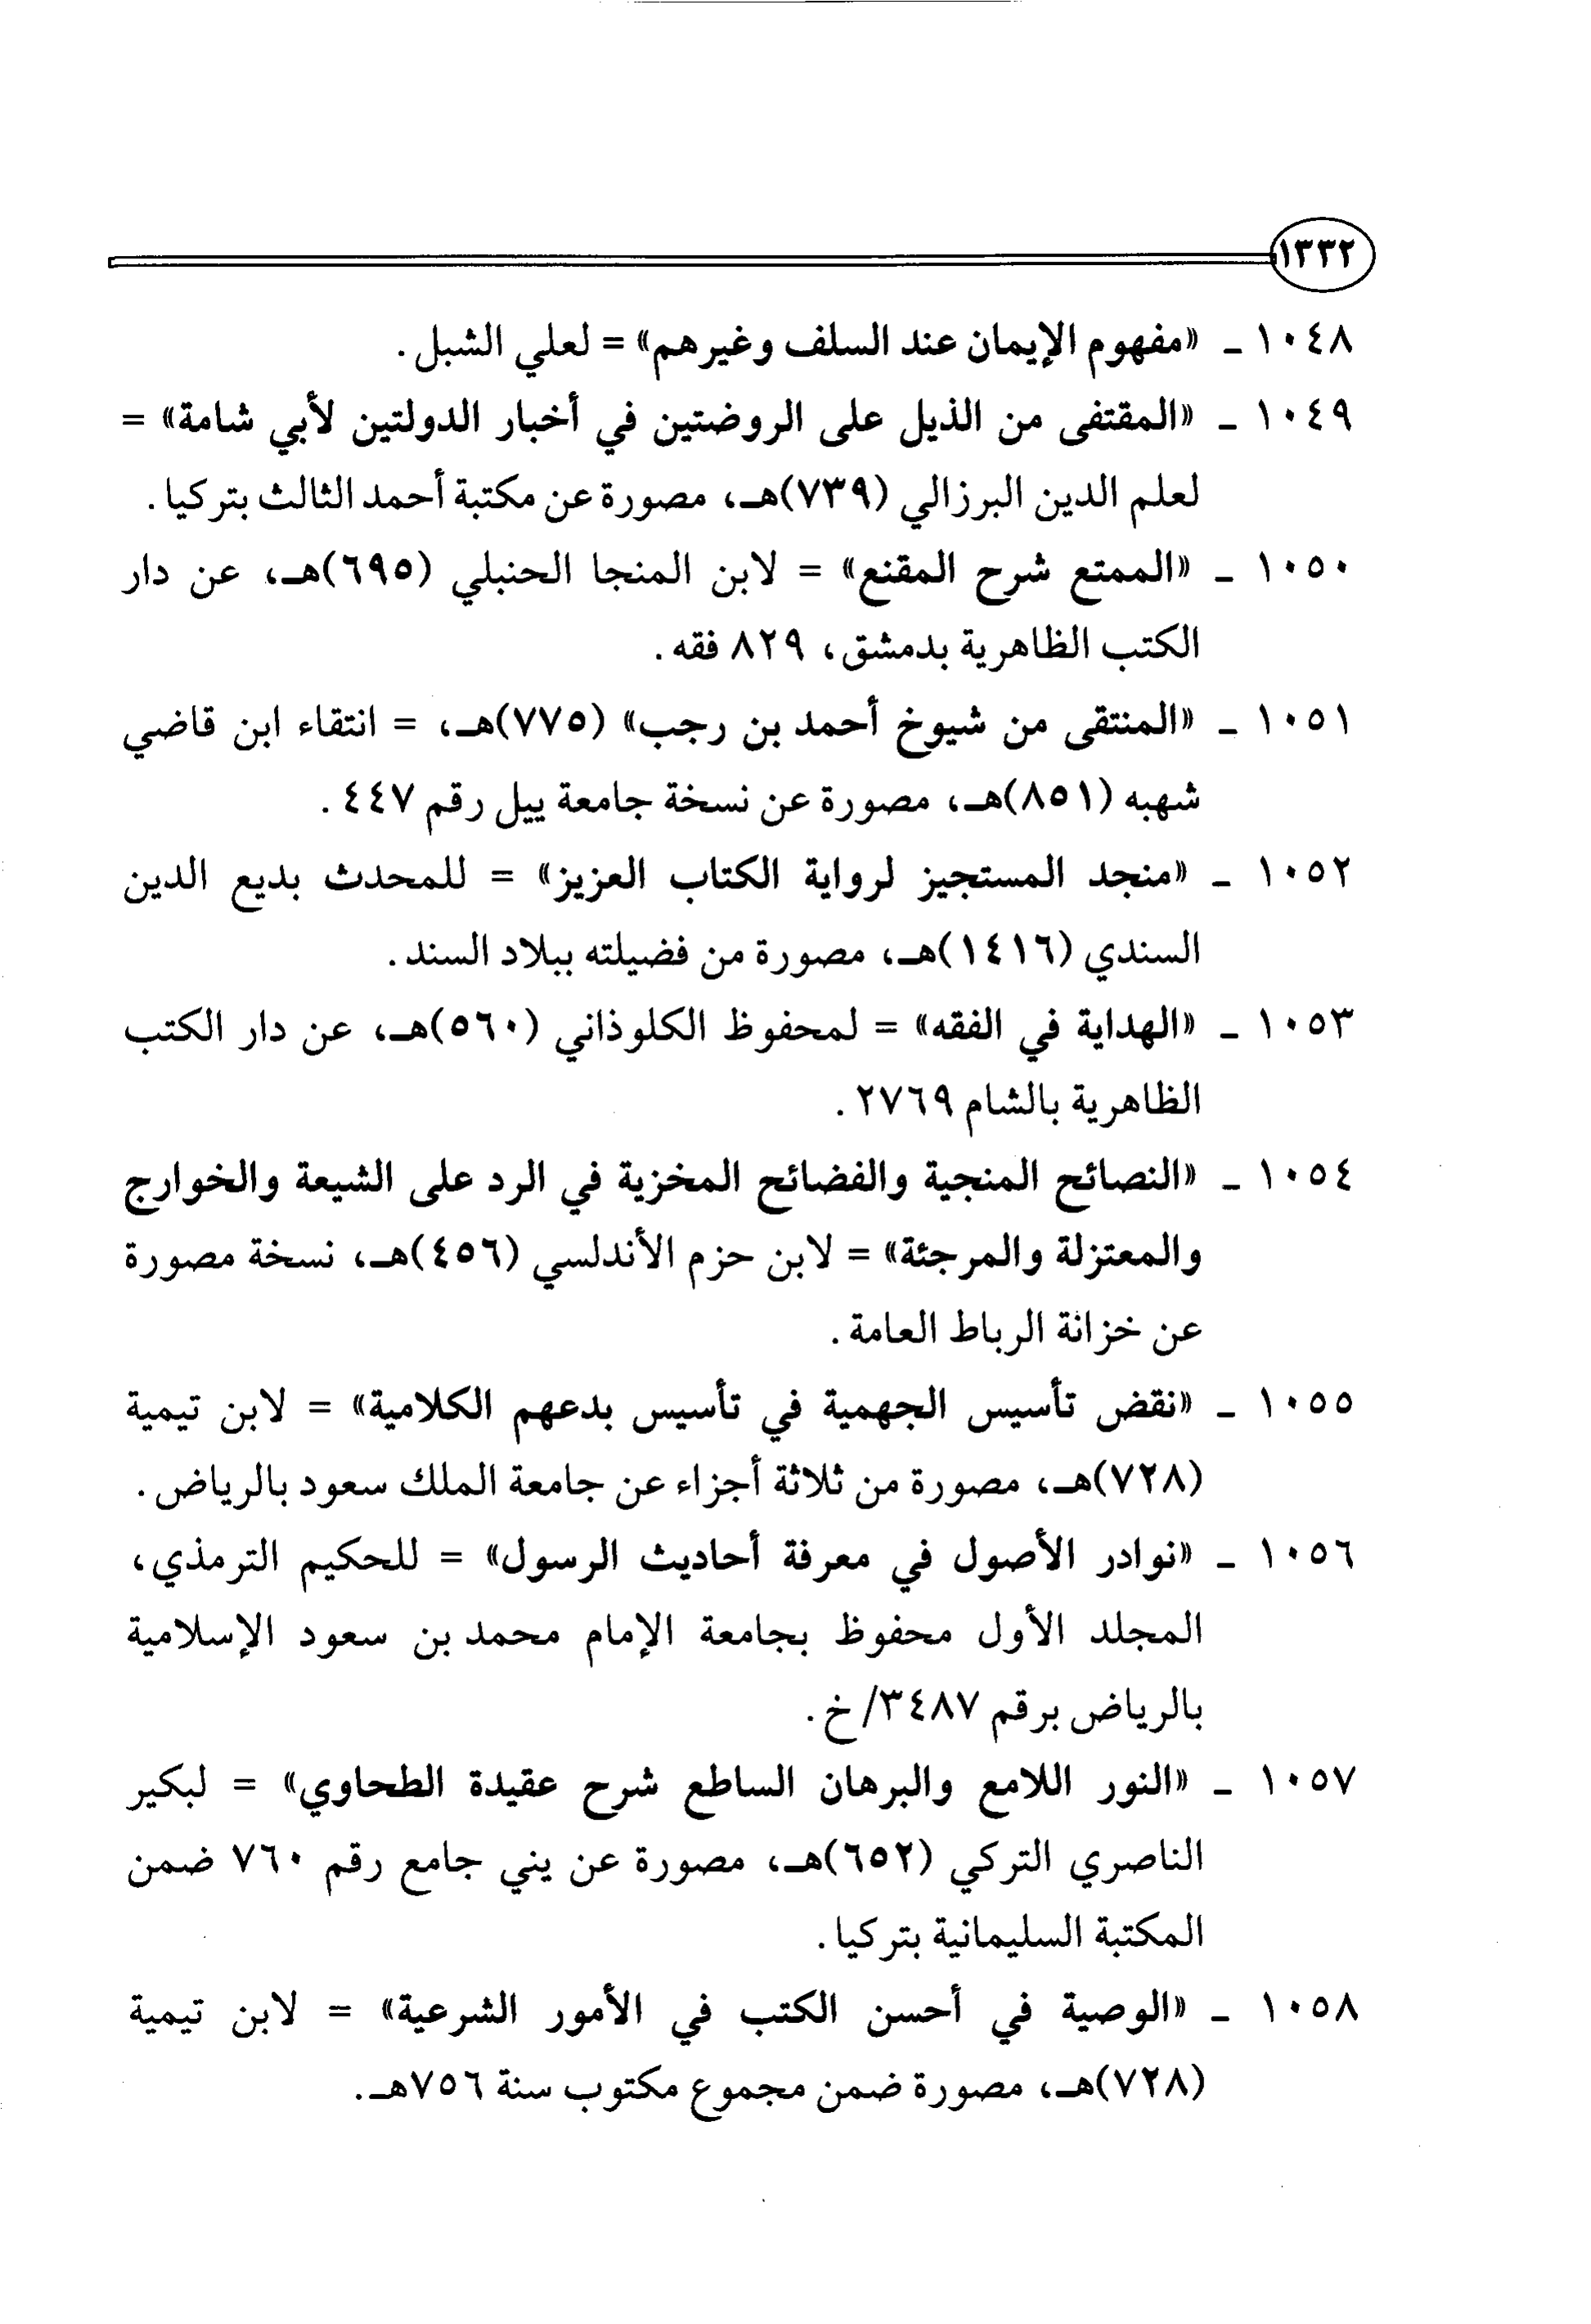 ١٣٣٢
١٠٤٨ ـ «مفهوم الإيمان عند السلف وغيرهم» = لعلي الشبل.
١٠٤٩ ـ «المقتفى من الذيل على الروضتين في أخبار الدولتين لأبي شامة» =
لعلم الدين البرزالي (٧٣٩)هـ، مصورة عن مكتبة أحمد الثالث بتركيا.
١٠٥٠ ـ «الممتع شرح المقنع» = لابن المنجا الحنبلي (٦٩٥)هـ، عن دار
الكتب الظاهرية بدمشق، ٨٢٩ فقه.
١٠٥١ ـ «المنتقى من شيوخ أحمد بن رجب» (٧٧٥)هـ، = انتقاء ابن قاضي
شهبه (٨٥١)هـ، مصورة عن نسخة جامعة ييل رقم ٤٤٧.
١٠٥٢ ـ «منجد المستجيز لرواية الكتاب العزيز» = للمحدث بديع الدين
السندي (١٤١٦)هـ، مصورة من فضيلته ببلاد السند.
١٠٥٣ ـ «الهداية في الفقه» = لمحفوظ الكلوذاني (٥٦٠)هـ، عن دار الكتب
الظاهرية بالشام ٢٧٦٩.
١٠٥٤ ـ «النصائح المنجية والفضائح المخزية في الرد على الشيعة والخوارج
والمعتزلة والمرجئة» = لابن حزم الأندلسي (٤٥٦)هـ، نسخة مصورة
عن خزانة الرباط العامة.
١٠٥٥ ـ «نقض تأسيس الجهمية في تأسيس بدعهم الكلامية» = لابن تيمية
(٧٢٨)هـ، مصورة من ثلاثة أجزاء عن جامعة الملك سعود بالرياض.
١٠٥٦ ـ «نوادر الأصول في معرفة أحاديث الرسول» = للحكيم الترمذي،
المجلد الأول محفوظ بجامعة الإمام محمد بن سعود الإسلامية
بالرياض برقم ٣٤٨٧/خ.
١٠٥٧ ـ «النور اللامع والبرهان الساطع شرح عقيدة الطحاوي» = لبكير
الناصري التركي (٦٥٢)هـ، مصورة عن يني جامع رقم ٧٦٠ ضمن
المكتبة السليمانية بتركيا.
١٠٥٨ ـ «الوصية في أحسن الكتب في الأمور الشرعية» = لابن تيمية
(٧٢٨)هـ، مصورة ضمن مجموع مكتوب سنة ٧٥٦هـ.